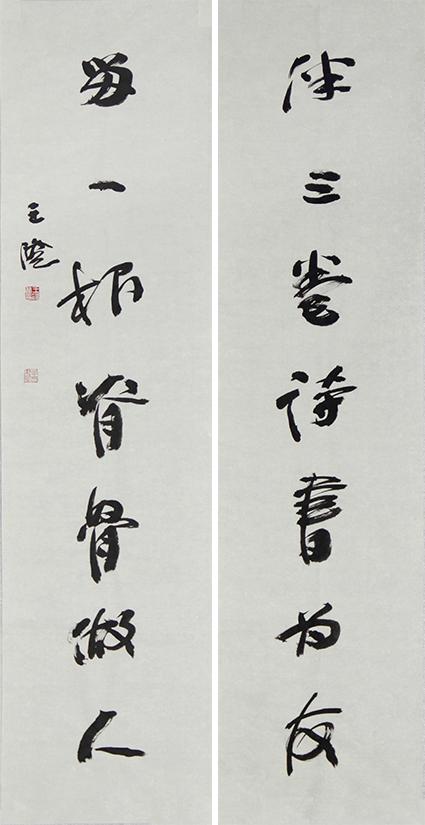 伴三卷诗书为友
留一根脊骨做人
王隆